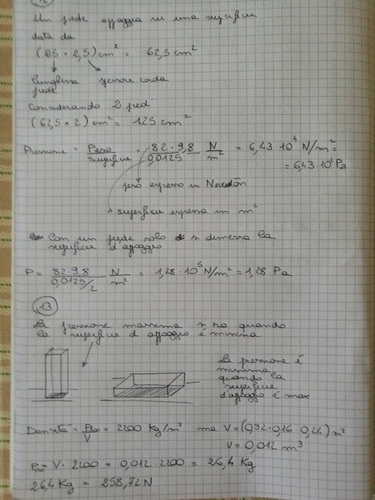 Un piede appoggia su una superficie
data da
(25 · 2,5) cm² = 62,5 cm²
lunghezza spessore corda
piede
Considerando 2 piedi
(62,5 × 2) cm² = 125 cm²
Pressione = Peso/superficie = 82 · 9,8/0,0125 N/m² = 6,43 · 10⁴ N/m² =
= 6,43 · 10⁴ Pa
peso espresso in Newton
superficie espressa in m²
Con un piede solo si dimezza la
superficie d'appoggio
P = 82 · 9,8/0,0125/2 N/m² = 1,28 · 10⁵ N/m² = 1,28 Pa
13
La pressione massima si ha quando
la superficie d'appoggio è minima
La pressione è
minima
quando la
superficie
d'appoggio è max
Densità = Peso/V = 2200 Kg/m³ ma V = (0,32 · 0,16 · 0,24) m³
V = 0,012 m³
Peso = V · 2200 = 0,012 · 2200 = 26,4 Kg
26,4 Kg = 258,72 N